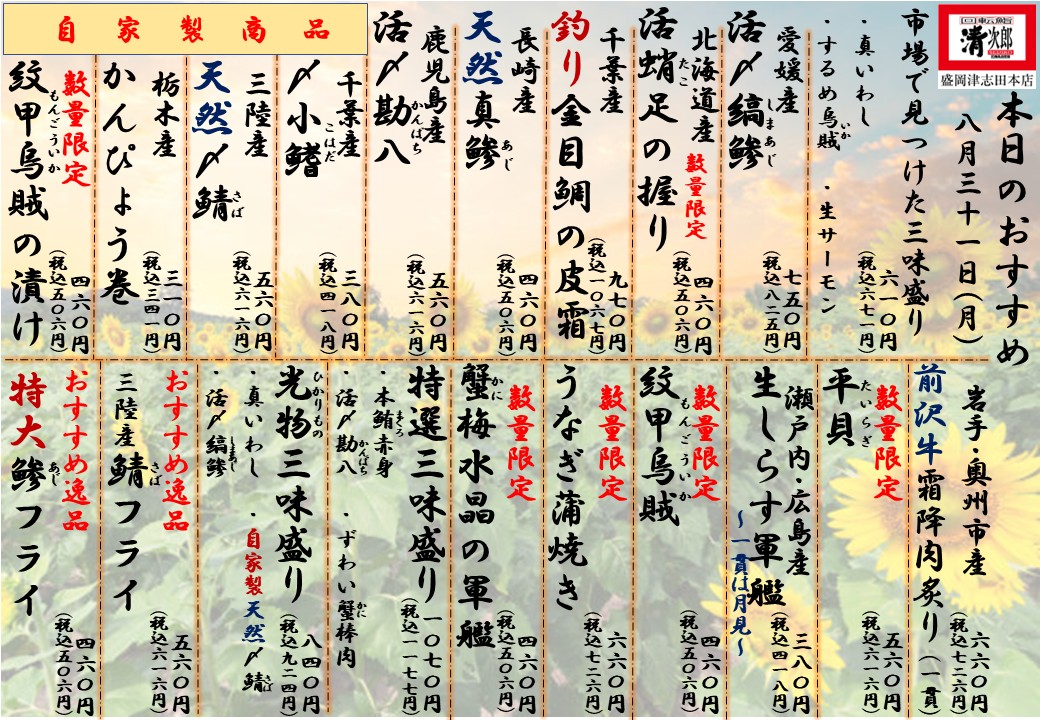 回転鮨
清次郎
SEIJIRO
盛岡津志田本店
本日のおすすめ
八月三十一日(月)
市場で見つけた三味盛り
・真いわし
・するめ烏賊
いか
・生サーモン
六一〇円
(税込六七一円)
愛媛産
活〆縞鯵
しまあじ
七五〇円
(税込八二五円)
北海道産
数量限定
活蛸足の握り
たこ
四六〇円
(税込五〇六円)
千葉産
釣り金目鯛の皮霜
九七〇円
(税込一〇六七円)
長崎産
天然真鯵
あじ
四六〇円
(税込五〇六円)
鹿児島産
活〆勘八
かんぱち
五六〇円
(税込六一六円)
自家製商品
千葉産
〆小鰭
こはだ
三八〇円
(税込四一八円)
三陸産
天然〆鯖
さば
五六〇円
(税込六一六円)
栃木産
かんぴょう巻
三一〇円
(税込三四一円)
数量限定
紋甲烏賊の漬け
もんごういか
四六〇円
(税込五〇六円)
岩手・奥州市産
前沢牛霜降肉炙り(一貫)
六六〇円
(税込七二六円)
数量限定
平貝
たいらぎ
五六〇円
(税込六一六円)
瀬戸内・広島産
生しらす軍艦
~一貫は月見~
三八〇円
(税込四一八円)
数量限定
紋甲烏賊
もんごういか
四六〇円
(税込五〇六円)
数量限定
うなぎ蒲焼き
六六〇円
(税込七二六円)
数量限定
蟹梅水晶の軍艦
かに
四六〇円
(税込五〇六円)
特選三味盛り
・本鮪赤身
まぐろ
・活〆勘八
かんぱち
・ずわい蟹棒肉
かに
一〇七〇円
(税込一一七七円)
光物三味盛り
ひかりもの
・真いわし
・活〆縞鯵
しまあじ
・自家製天然〆鯖
さば
八四〇円
(税込九二四円)
おすすめ逸品
三陸産鯖フライ
さば
五六〇円
(税込六一六円)
おすすめ逸品
特大鯵フライ
あじ
四六〇円
(税込五〇六円)